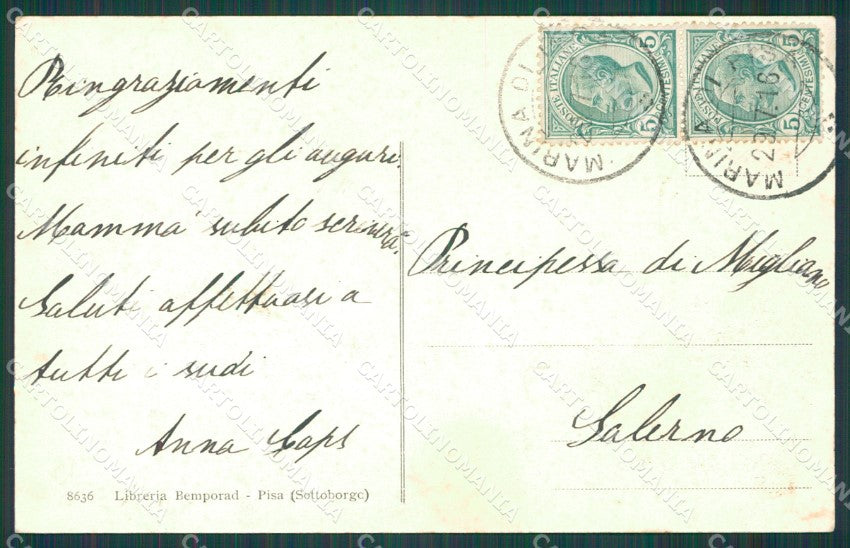 Ringraziamenti
infiniti per gli auguri.
Mamma subito scriverà
Saluti affettuosi a
tutti i
Anna
8636 Libreria Bemporad - Pisa (Sottoborgo)
POSTE ITALIANE
CENTESIMI
5
5
POSTE ITALIANE
CENTESIMI
5
5
MARINA DI
MARINA
29.7.16
Principessa di Migliano
Salerno
CARTOLINOMANIA